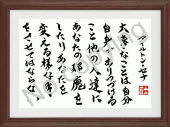 アイルトン・セナ
大事なことは自分
自身でありつづける
こと他の人達に
あなたの邪魔を
したりあなたを
変える様な事
をさせてはならない